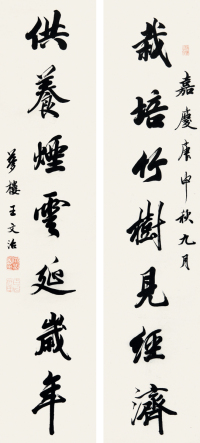 嘉慶庚申秋九月
栽培竹樹見經濟
供養煙雲延歲年
夢樓王文治